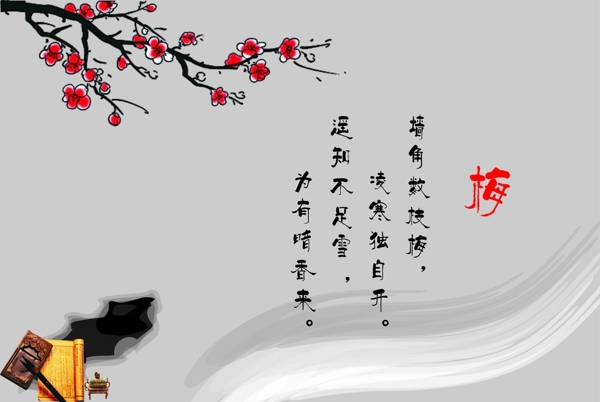 梅
墙角数枝梅，
凌寒独自开。
遥知不足雪，
为有暗香来。